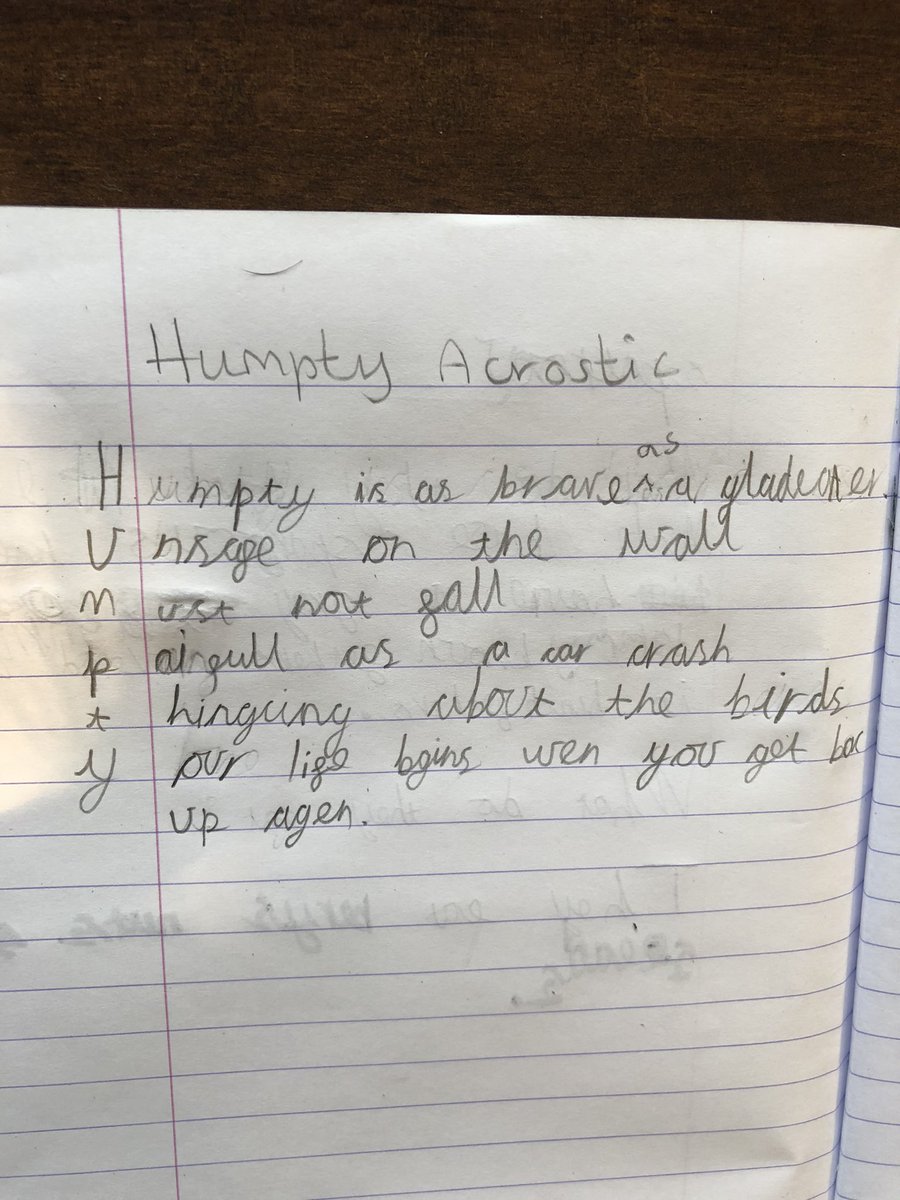 Humpty Acrostic
as
Humpty is as brave ^ a gladeater.
Unsage on the wall
Must not gall
paingull as a car crash
thingcing about the birds
your lige bgins wen you get bac
up agen.